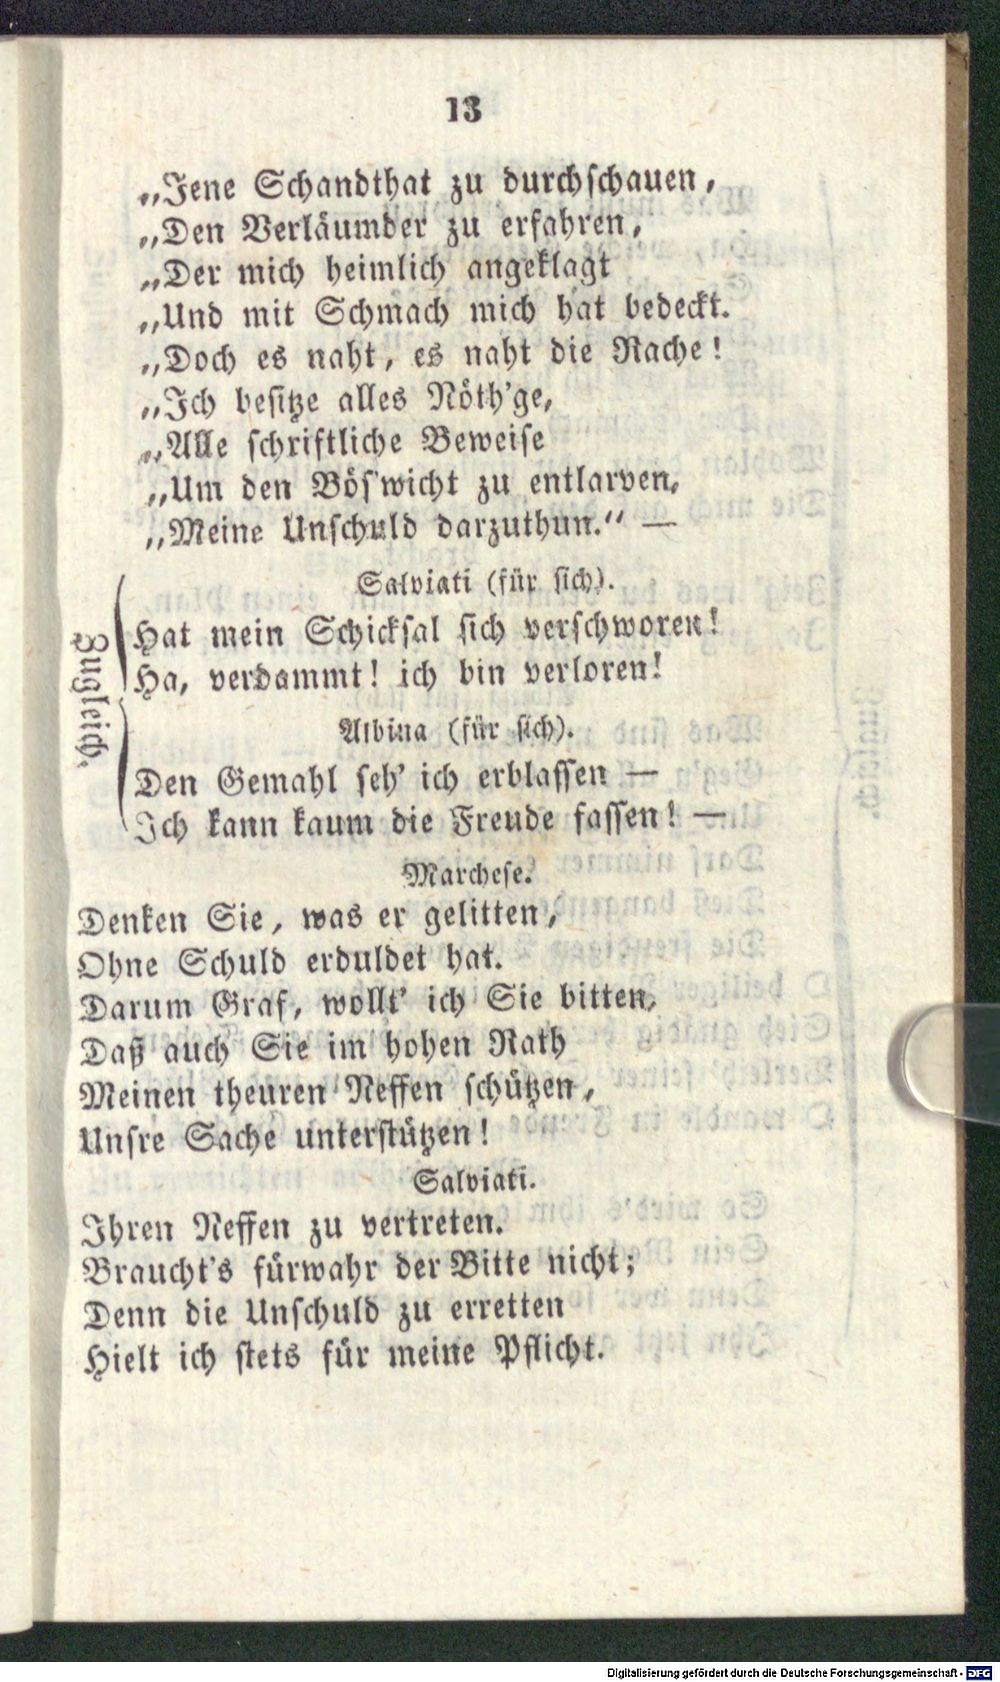 13
„Jene Schandthat zu durchschauen,
„Den Verläumder zu erfahren,
„Der mich heimlich angeklagt
„Und mit Schmach mich hat bedeckt.
„Doch es naht, es naht die Rache!
„Ich besitze alles Nöth'ge,
„Alle schriftliche Beweise
„Um den Bös'wicht zu entlarven,
„Meine Unschuld darzuthun.“ —
Salviati (für sich).
Hat mein Schicksal sich verschworen!
Ha, verdammt! ich bin verloren!
Zugleich.
Albina (für sich).
Den Gemahl seh' ich erblassen —
Ich kann kaum die Freude fassen! —
Marchese.
Denken Sie, was er gelitten,
Ohne Schuld erduldet hat.
Darum Graf, wollt' ich Sie bitten,
Daß auch Sie im hohen Rath
Meinen theuren Neffen schützen,
Unsre Sache unterstützen!
Salviati.
Ihren Neffen zu vertreten.
Braucht's fürwahr der Bitte nicht;
Denn die Unschuld zu erretten
Hielt ich stets für meine Pflicht.
Digitalisierung gefördert durch die Deutsche Forschungsgemeinschaft - DFG